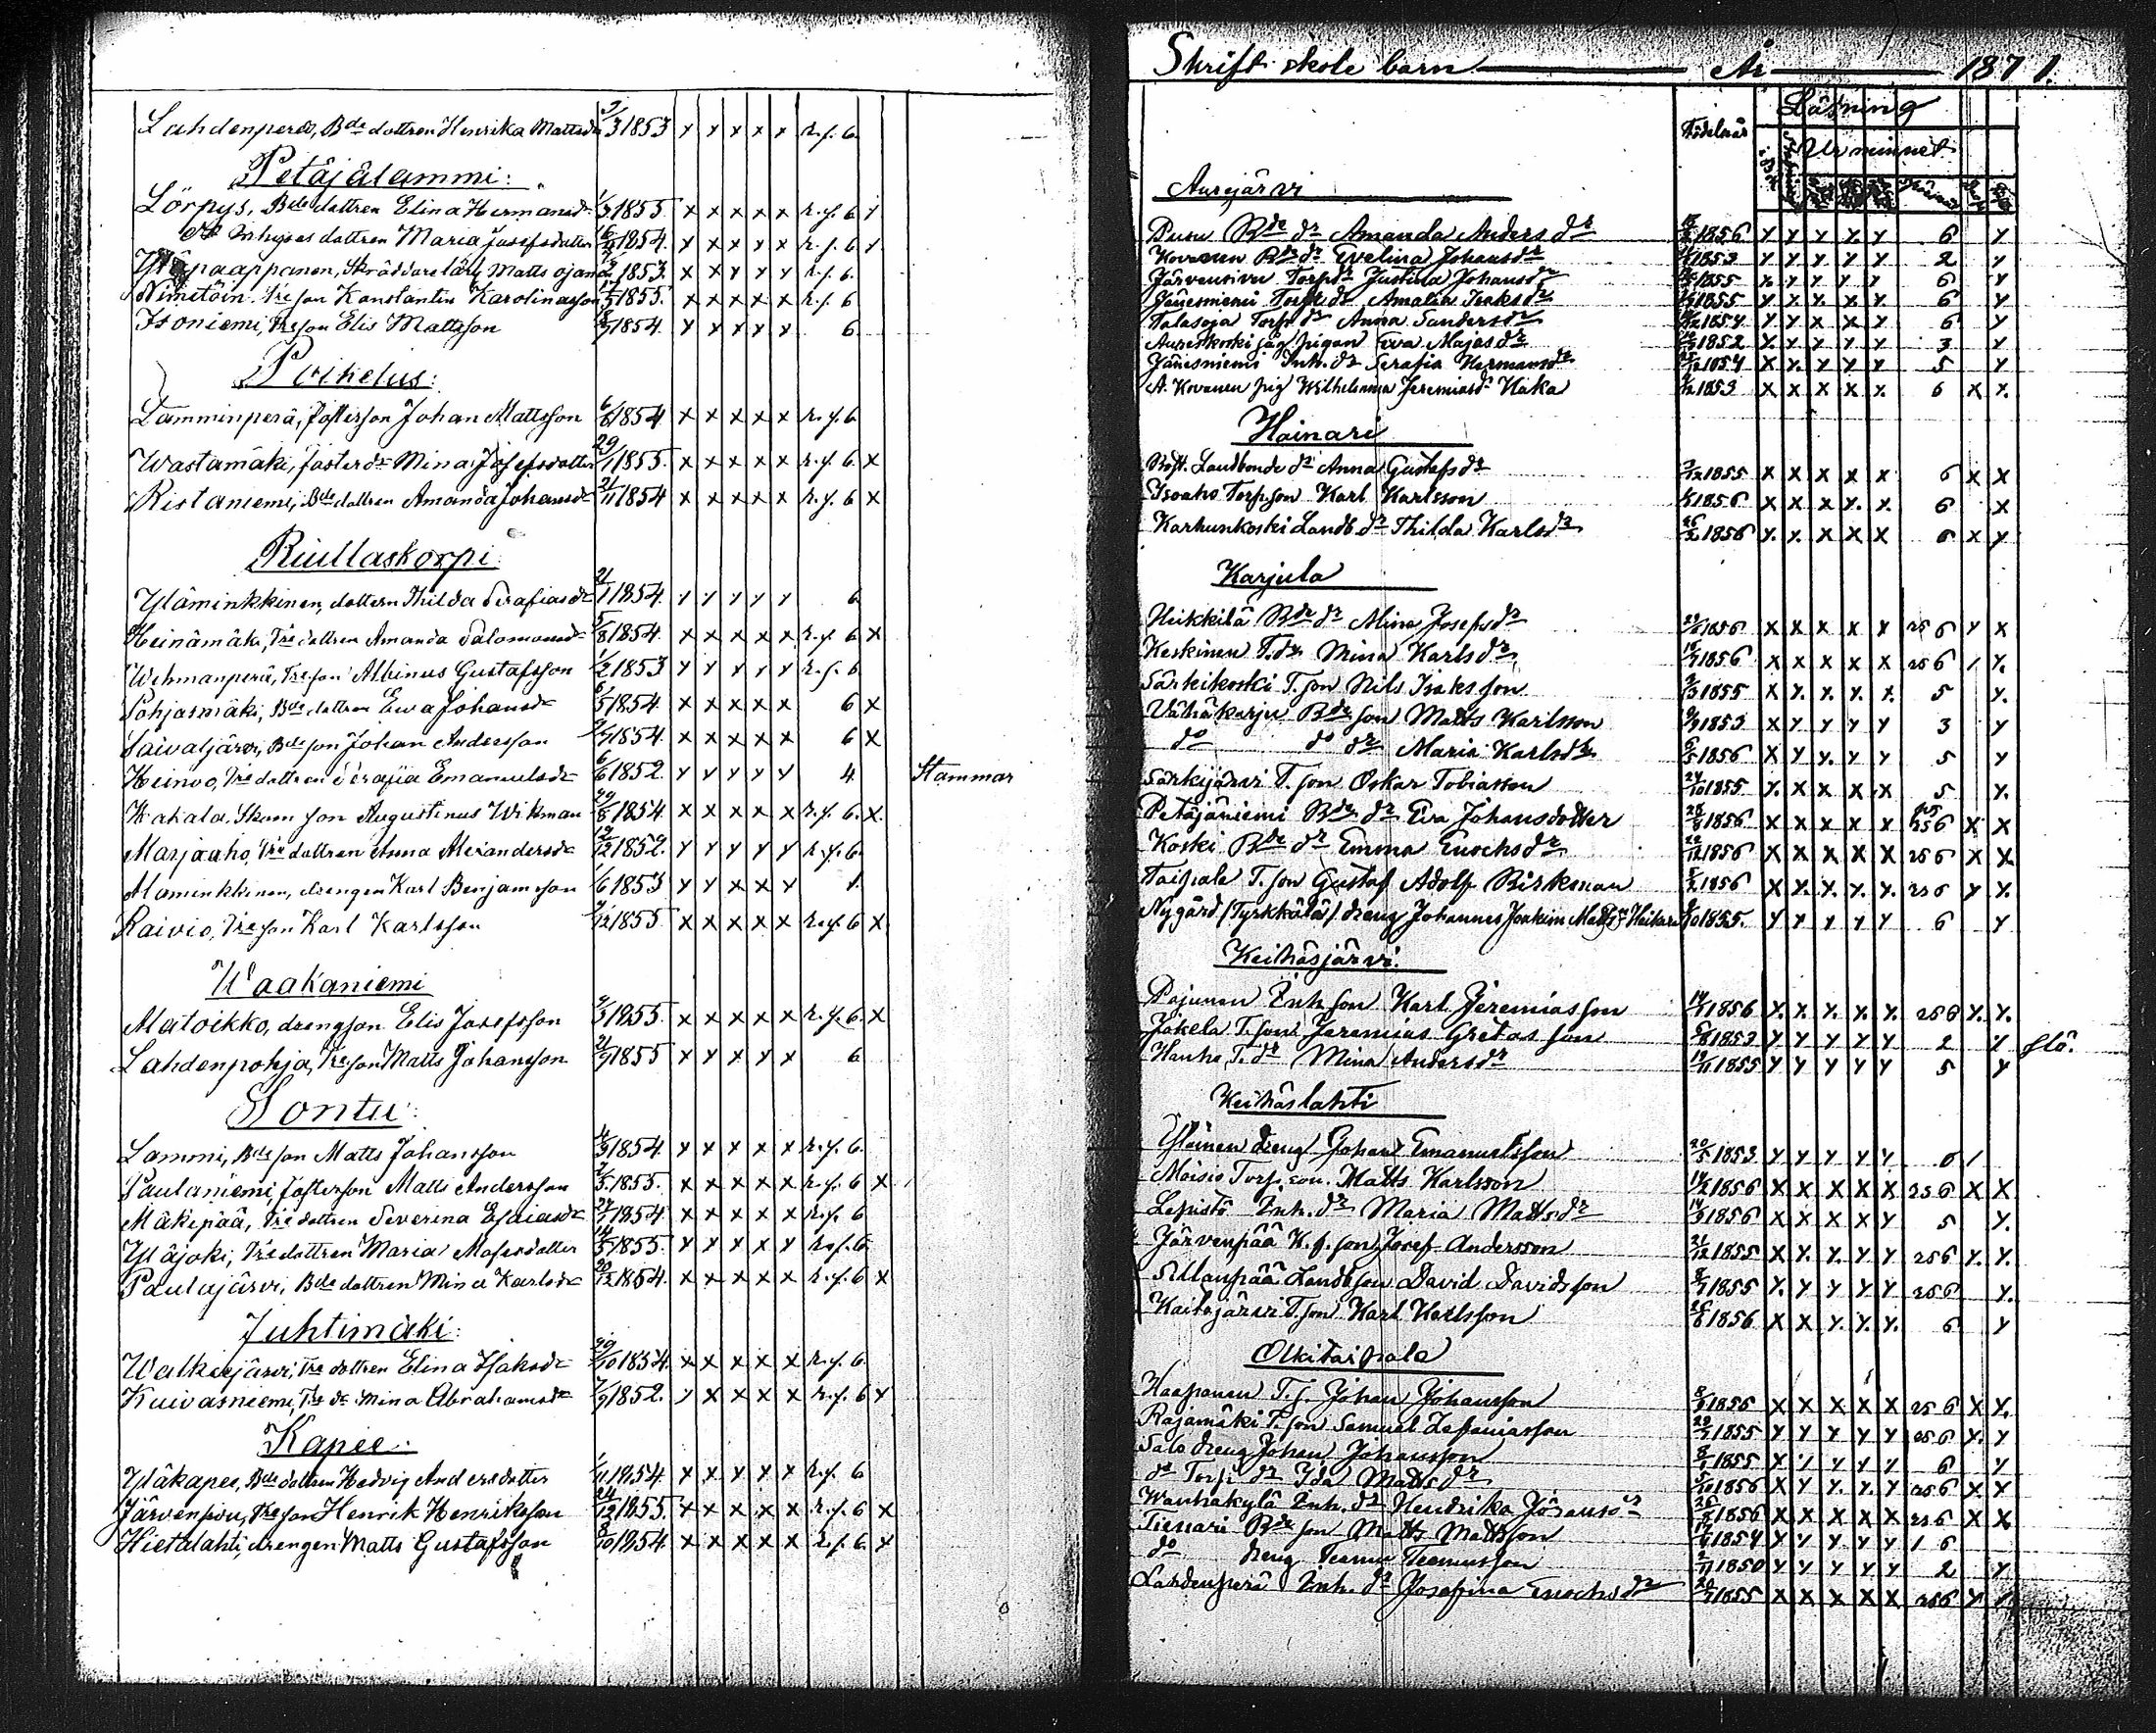 Lahdenperä, Bde dottren Henrika Mattsdr 3/3 1853 x x x x x r.f. 6
Petäjälammi:
Lörpys, Bde dottren Elina Hermansdr 1/3 1855 x x x x x r.f. 6 x
dottren Maria Josefsdotter 1854 x x x x x r.f. 6 x
Skräddare lärl. Matts 1853 x x x x x r.f. 6
Nimetöin Tre son Konstantin Karolinasson 1855 x x x x x r.f. 6
Isoniemi, Tre son Elis Mattsson 1854 x x x x x 6
Poikelus:
Lamminperä, fosterson Johan Mattsson 6/6 1854 x x x x x r.f. 6
Wastamäki, fosterdr Mina Josefsdotter 29/1 1855 x x x x x r.f. 6 x
Ristaniemi, Bde dottren Amanda Johansdr 21/11 1854 x x x x x r.f. 6 x
Riullaskorpi
Yläminkkinen, dottern Thilda Serafiasdr 21/1 1854 x x x x x 6
Heinämäki, Tre dottren Amanda Salomonsdr 5/8 1854 x x x x x r.f. 6 x
Wehmanperä, Tre son Albinus Gustafsson 1/2 1853 x x x x x r.f. 6
Pohjasmäki, Bde dottren Ewa Johansdr 6/5 1854 x x x x x 6 x
Paivaljärvi, Bde son Johan Andersson 1854 x x x x x 6 x
Heinoo, Tre dottren Serafia Emanuelsdr 6/6 1852 x x x x x 4 Stammar
Kahala, Skom son Augustinus Wikman 29/8 1854 x x x x x r.f. 6 x
Marjaaho, Tre dottren Anna Alexandersdr 12/12 1852 x x x x x r.f. 6
Alaminkkinen, drengen Karl Benjamsson 1/6 1853 x x x x x 1
Raivio, Tre son Karl Karlsson 1/12 1855 x x x x x r.f. 6 x
Waakaniemi
Matoikko, drengson Elis Josefsson 9/3 1855 x x x x x r.f. 6 x
Lahdenpohja, Tre son Matts Johansson 21/9 1855 x x x x x 6
Sontu:
Lammi, Bde son Matts Johansson 4/9 1854 x x x x x r.f. 6
Paulaniemi, fosterson Matts Andersson 2/5 1855 x x x x x r.f. 6 x
Mäkipää, Tre dottren Severina Esaiasdr 27/1 1854 x x x x x r.f. 6
Yläjoki, Tre dottren Maria Mosesdotter 14/5 1855 x x x x x r.f. 6
Paulajärvi, Bde dottren Mina Karlsdr 20/12 1854 x x x x x r.f. 6 x
Juhtimäki:
Walkiejärvi, Tre dottren Elina Isaksdr 29/10 1854 x x x x x r.f. 6
Kuivasniemi, Tre dr Mina Abrahamsdr 7/9 1852 x x x x x r.f. 6 x
Kapee:
Yläkapee, Bde dottren Hedvig Andersdotter 1/11 1854 x x x x x r.f. 6
Järvensivu, Tre son Henrik Henriksson 24/12 1855 x x x x x r.f. 6 x
Hietalahti, drengen Matts Gustafsson 8/10 1854 x x x x x r.f. 6 x
Skrift skole barn År 1871.
Läsning
Födelseår
Ur minnet
i Bok
Aurejärvi
Pusu Bde dr Amanda Anders dr 1856 x x x x x 6 x
Kovanen Bde dr Evelina Johansdr 1853 x x x x x 2 x
Järvensivu Torp dr Justina Johansdr 1855 x x x x x 6 x
Jänesniemi Torp dr Amalia Isaksdr 1855 x x x x x 6 x
Talasoja Torp dr Anna Sandersdr 1854 x x x x x 6 x
Aureskoski såg pigan Eva Majasdr 1852 x x x x x 3 x
Jänesniemi Inh. dr Serafia Hermansdr 1854 x x x x x 5 x
A. Kovanen pig Wilhelmina Jeremiasdr Kaka 1853 x x x x x 6 x x
Hainari
Landbonde dr Anna Gustafsdr 1855 x x x x x 6 x x
Isoaho Torp son Karl Karlsson 1856 x x x x x 6 x
Karhunkoski Landb dr Thilda Karlsdr 26/2 1856 x x x x x 6 x x
Karjula
Heikkilä Bde dr Mina Josefsdr 1856 x x x x x 256 x x
Keskinen T. dr Mina Karlsdr 1856 x x x x x 256 1 x
Särkikoski T. son Nils Isaksson 1855 x x x x x 5 x
Vähäkarju Bde son Matts Karlsson 1853 x x x x x 3 x
do do dr Maria Karlsdr 1856 x x x x x 5 x
Särkijärvi T. son Oskar Tobiasson 24/10 1855 x x x x x 5 x
Petäjäniemi Bde dr Eva Johansdotter 1856 x x x x x 256 x x
Koski Bde dr Emma Enochsdr 1856 x x x x x 256 x x
Taipale T. son Gustaf Adolf Birkman 1856 x x x x x 256 x x
Nygård /Tyrkkälä/ dreng Johannes Joakim Mattss Heikura 1855 x x x x x 6 x
Keihäsjärvi
Pajunen Inh son Karl Jeremiasson 1856 x x x x x 256 x x
Jokela T. son Jeremias Gretasson 1853 x x x x x 2 x slö.
Hanho T. dr Mina Andersdr 19/11 1855 x x x x x 5 x
Keihäslahti
Yläinen dreng Johan Emanuelsson 20/5 1853 x x x x x 6 1
Moisio Torp. son Matts Karlsson 14/2 1856 x x x x x 256 x x
Lepistö Inh. dr Maria Mattsdr 14/3 1856 x x x x x 5 x
Järvenpää K. f. son Josef Andersson 21/12 1855 x x x x x 256 x x
Sillanpää Landb son David Davidsson 1855 x x x x x 256 x
Kaitajärvi T. son Karl Karlsson 26/6 1856 x x x x x 6 x
Olkitaipale
Haapanen T. s. Johan Johansson 1856 x x x x x 256 x x
Rajamäki T. son Samuel Zefaniasson 1855 x x x x x 256 x x
Salo dreng Johan Johansson 1855 x x x x x 6 x
do Torp dr Ida Mattsdr 1856 x x x x x 256 x x
Wanhakylä Inh. dr Hendrika Johansdr 1856 x x x x x 256 x x
Tienari Bde son Matts Mattsson 1854 x x x x x 1 6
do dreng Teemu Teemusson 1850 x x x x x 2 x
Lahdenperä Inh. dr Josefina Enochsdr 1855 x x x x x 256 x 1